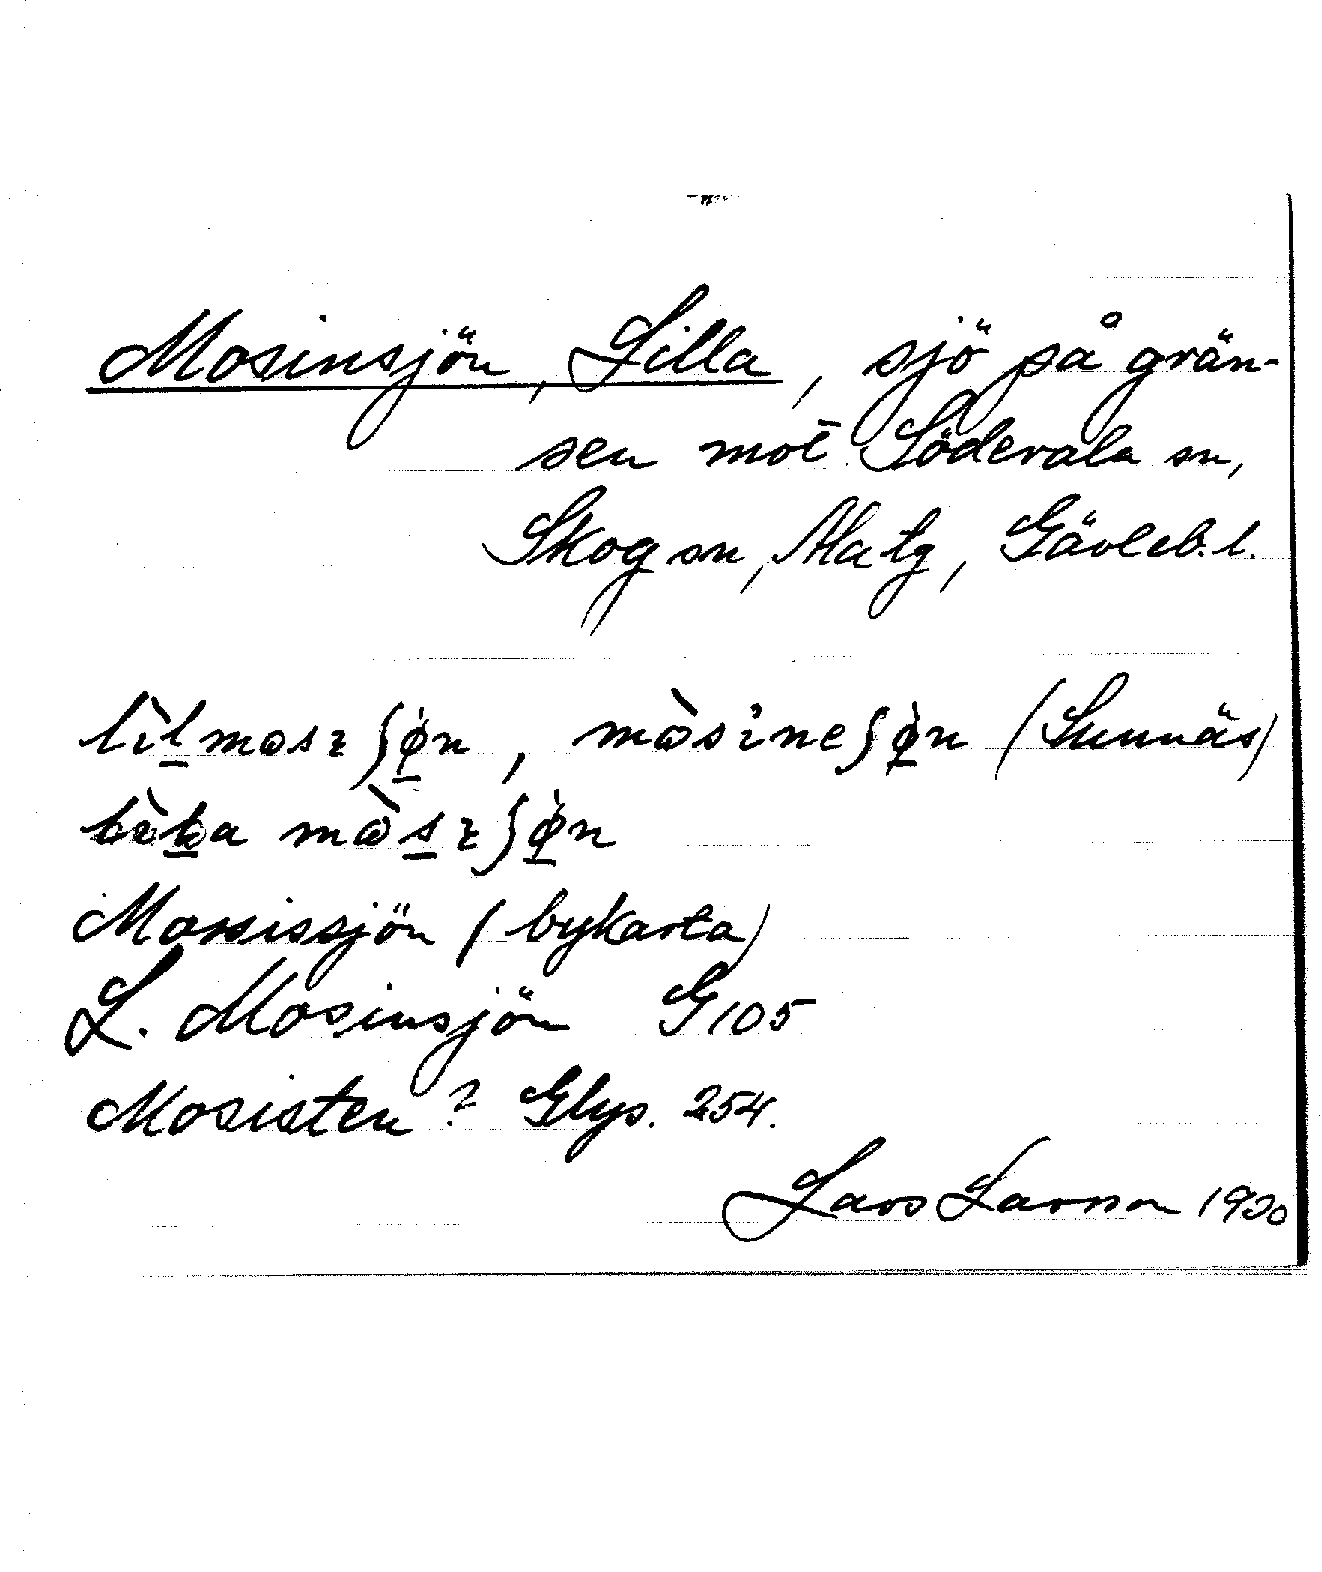 Mosinsjön, Lilla, sjö på grän-
sen mot Söderala sn,
Skog sn, Ala tg, Gävleb. l.
lìlmɷsɿʃø̀n, mɷ̀sineʃø̀n (Sunnäs)
mɷ̀sɿʃø̀n
Mossissjön (bykarta)
L. Mosinsjön G 105
Mosisten? Glys. 254.
Lars Larsson 1930